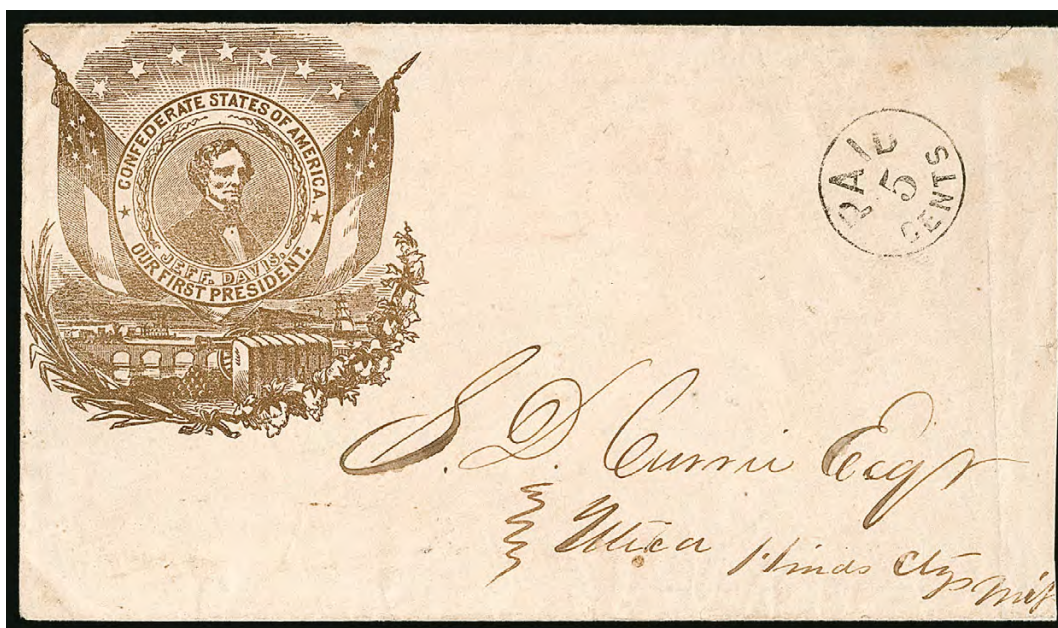 CONFEDERATE STATES OF AMERICA.
JEFF. DAVIS.
OUR FIRST PRESIDENT.
PAID
5
CENTS
S. D. Currie Esqr
Utica Hinds Cty Miss